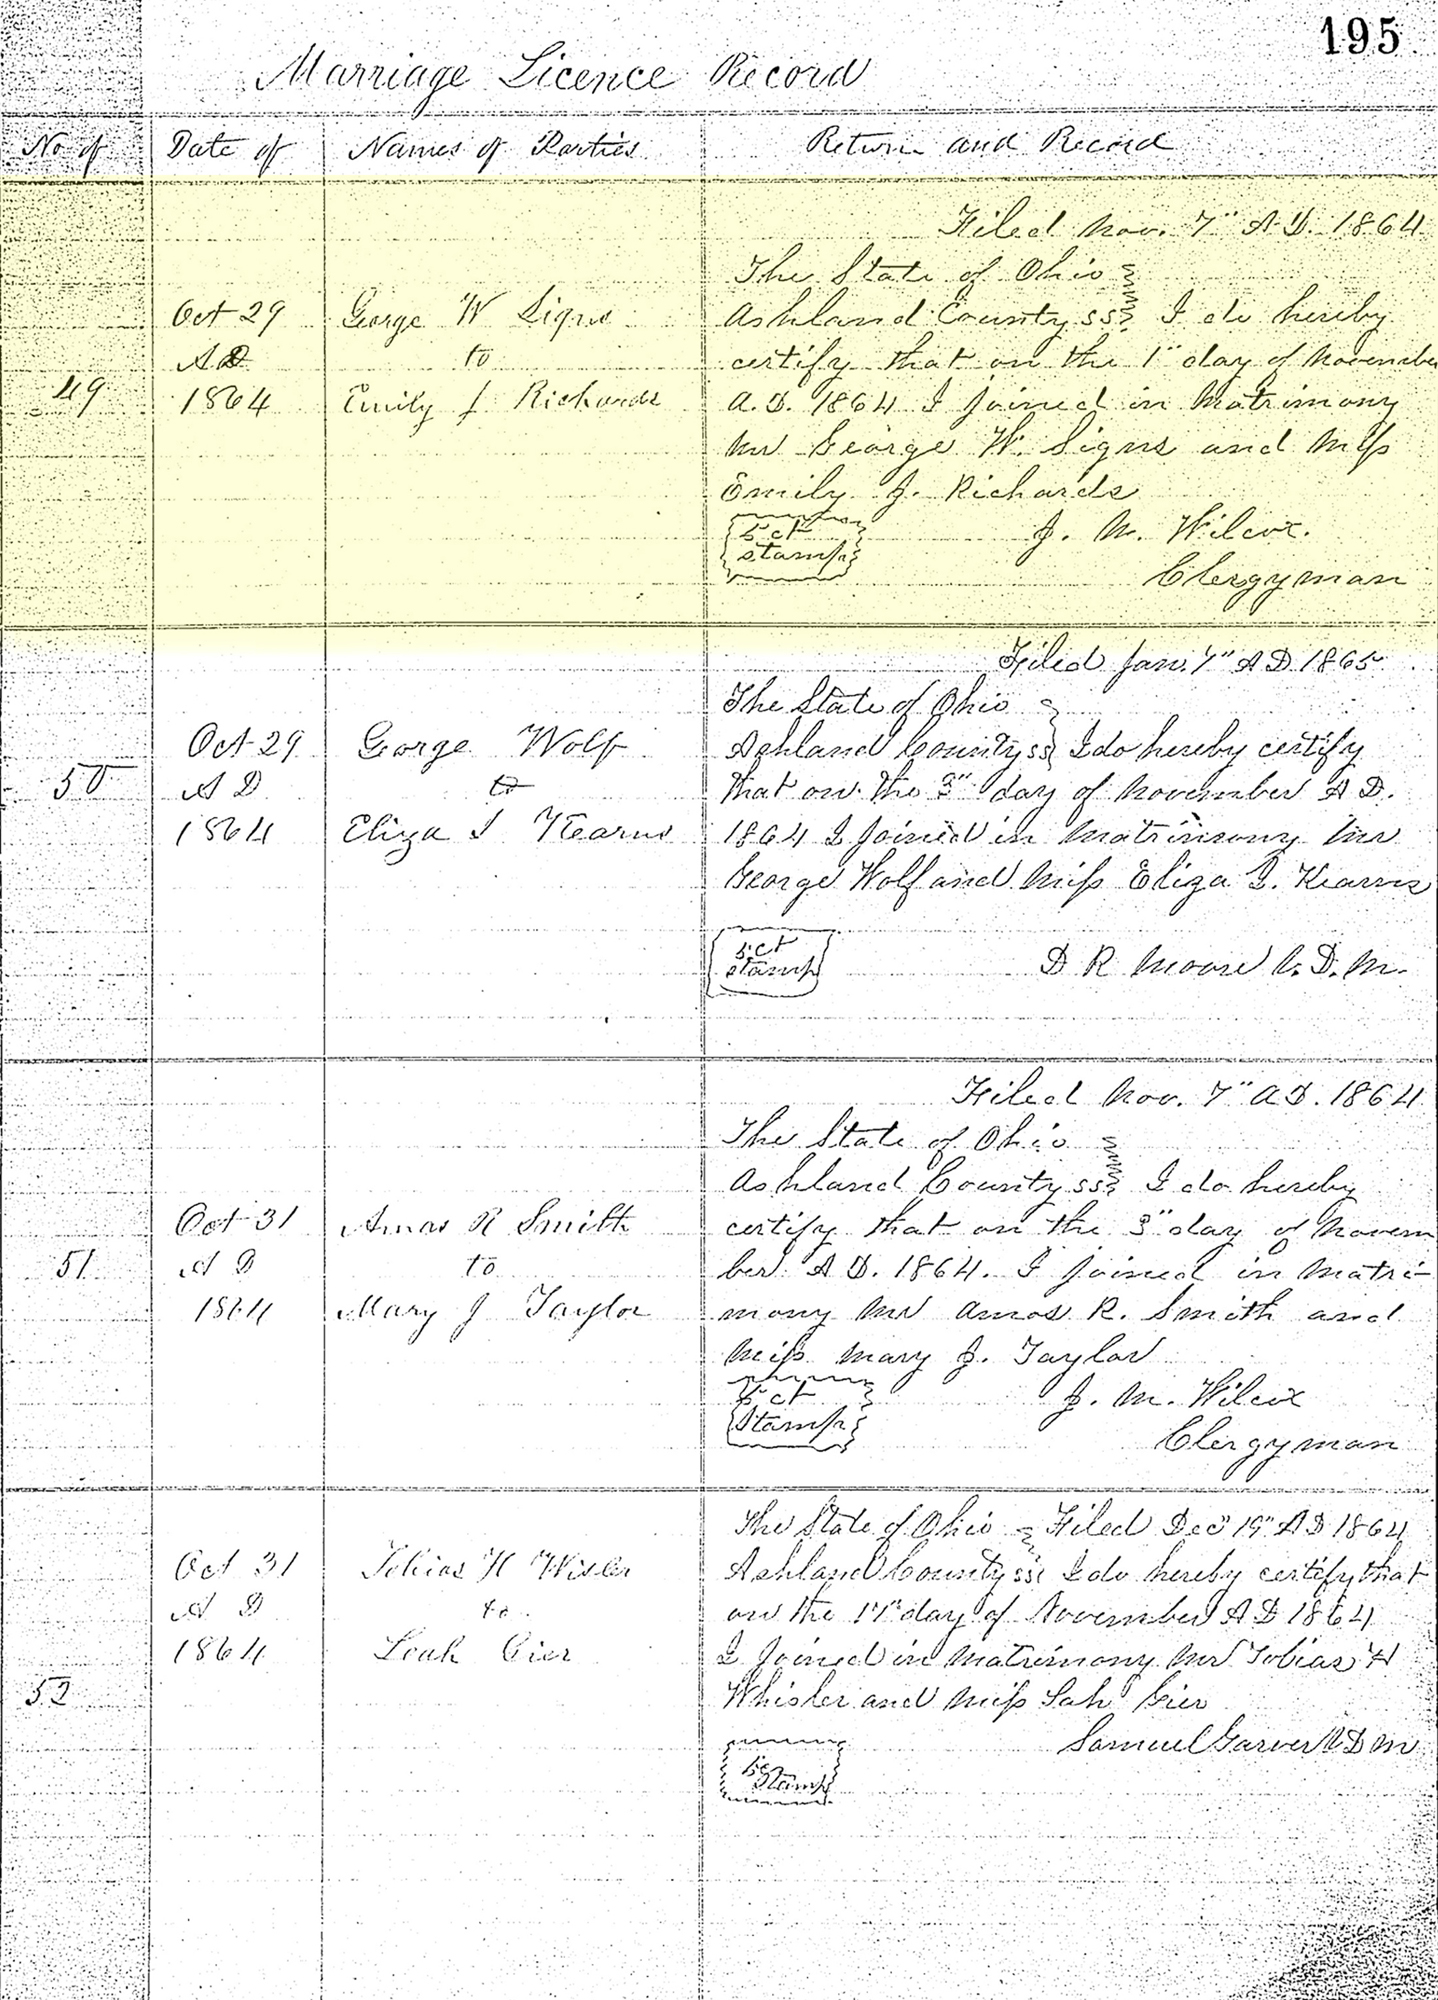 195
Marriage Licence Record
No of Date of Names of Parties Return and Record
Filed Nov. 7" A.D. 1864
The State of Ohio
Oct 29 George W Signs Ashland County ss I do hereby
A D to certify that on the 1" day of November
49 1864 Emily J Richards A.D. 1864 I joined in Matrimony
Mr George W. Signs and Miss
Emily J. Richards
5 ct J. M. Wilcox.
stamp
Clergyman
Filed Jan. 7" A D 1865
The State of Ohio
Oct 29 George Wolf Ashland County ss I do hereby certify
50 A D to that on the 3" day of November A D.
1864 Eliza I Kearns 1864 I joined in Matrimony Mr
George Wolf and Miss Eliza I. Kearns
5 ct
stamp D R Moore V. D. M.
Filed Nov. 7" A.D. 1864
The State of Ohio
Ashland County ss I do hereby
Oct 31 Amos R Smith certify that on the 3" day of Novem
51 A D to ber A.D. 1864. I joined in Matri-
1864 Mary J Taylor mony Mr Amos R. Smith and
Miss Mary J. Taylor
5 ct J. M. Wilcox
Stamp
Clergyman
The State of Ohio Filed Dec 19" A D 1864
Oct 31 Tobias H Wisler Ashland County ss I do hereby certify that
A D to on the 17" day of November A D 1864
1864 Leah Gier I joined in Matrimony Mr Tobias H
52 Whisler and Miss Lah Gier
Samuel Garver V D M
5 ct
Stamp